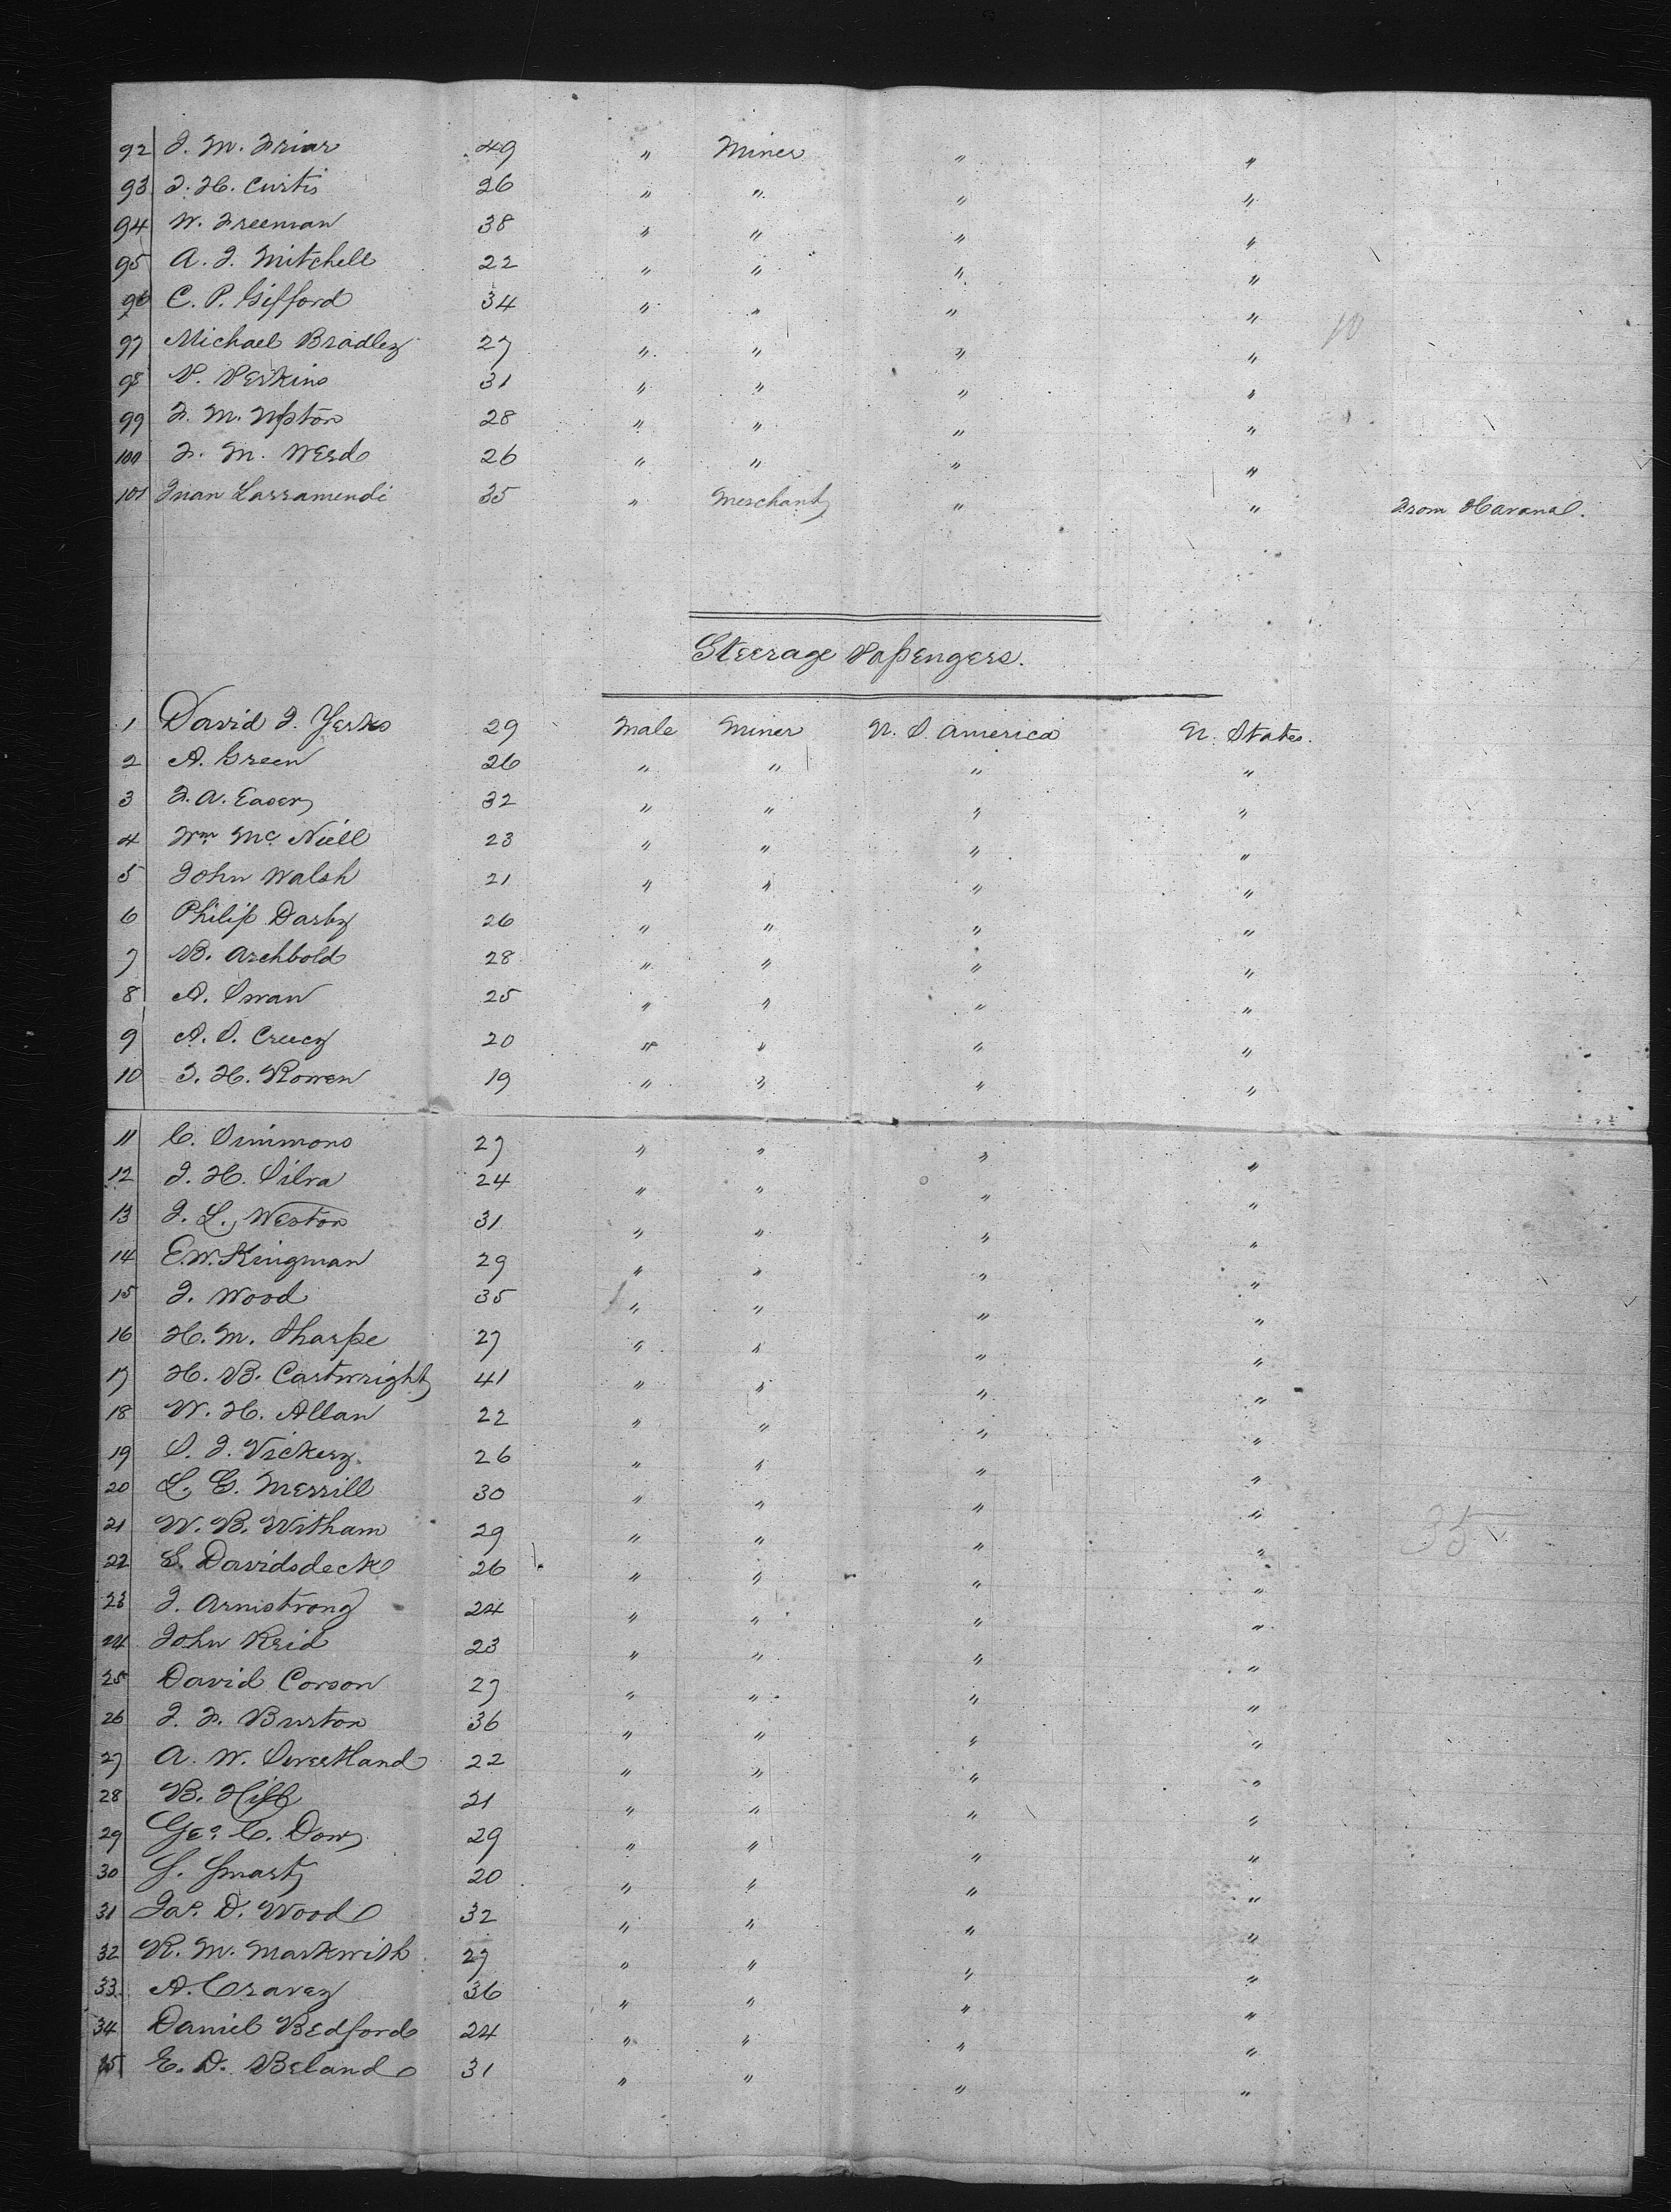 92 J. M. Friar 49 " Miner " "
93 J. H. Curtis 26 " " " "
94 W. Freeman 38 " " " "
95 A. J. Mitchell 22 " " " "
96 C. P. Gifford 34 " " " "
97 Michael Bradley 27 " " " " 10
98 P. Perkins 31 " " " "
99 F. M. Upton 28 " " " "
100 F. M. Werd 26 " " " "
101 Juan Larramendi 35 " Merchant " " From Havana.
Steerage Passengers.
1 David J. Yerks 29 Male Miner U. S. America U. States.
2 A. Green 26 " " " "
3 J. A. 32 " " " "
4 Wm Mc Niell 23 " " " "
5 John Walsh 21 " " " "
6 Philip Darby 26 " " " "
7 B. Archbold 28 " " " "
8 A. Swan 25 " " " "
9 A. S. Creecy 20 " " " "
10 J. H. Rowen 19 " " " "
11 C. Simmons 27 " " " "
12 J. H. Silva 24 " " " "
13 J. L. Weston 31 " " " "
14 E. W. Kingman 29 " " " "
15 J. Wood 35 " " " "
16 H. M. Sharpe 27 " " " "
17 H. B. Cartwright 41 " " " "
18 W. H. Allan 22 " " " "
19 S. J. Vickery 26 " " " "
20 L. G. Merrill 30 " " " "
21 W. B. Witham 29 " " " " 35
22 S. Davidsdeck 26 " " " "
23 J. Armstrong 24 " " " "
24 John Reid 23 " " " "
25 David Corson 27 " " " "
26 J. F. Burton 36 " " " "
27 A. W. Sweetland 22 " " " "
28 B. 21 " " " "
29 Geo. C. Dow 29 " " " "
30 S. Smart 20 " " " "
31 Jas. D. Wood 32 " " " "
32 R. M. Markwith 27 " " " "
33 A. Cravey 36 " " " "
34 Daniel Bedford 24 " " " "
35 E. D. Beland 31 " " " "